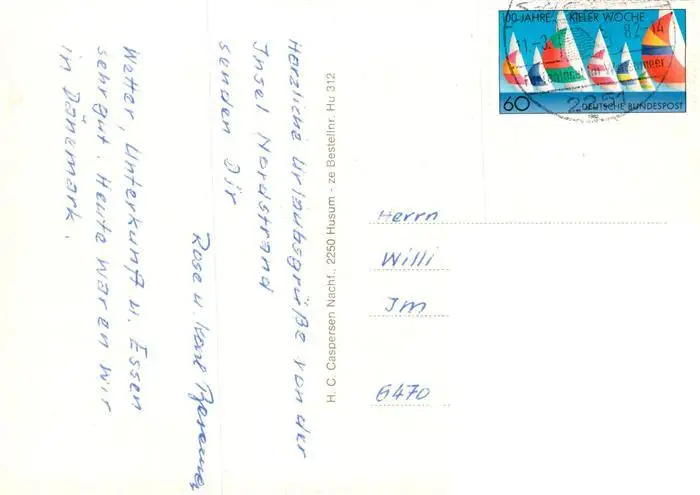 Herzliche Urlaubsgrüße von der
Insel Nordstrand
senden Dir
Rose u. Karl
Wetter, Unterkunft u. Essen
sehr gut. Heute waren wir
in Dänemark.
H. C. Caspersen Nachf., 2250 Husum - ze Bestellnr. Hu 312
100 JAHRE KIELER WOCHE
60
DEUTSCHE BUNDESPOST
1982
2251
Herrn
Willi
Im
6470